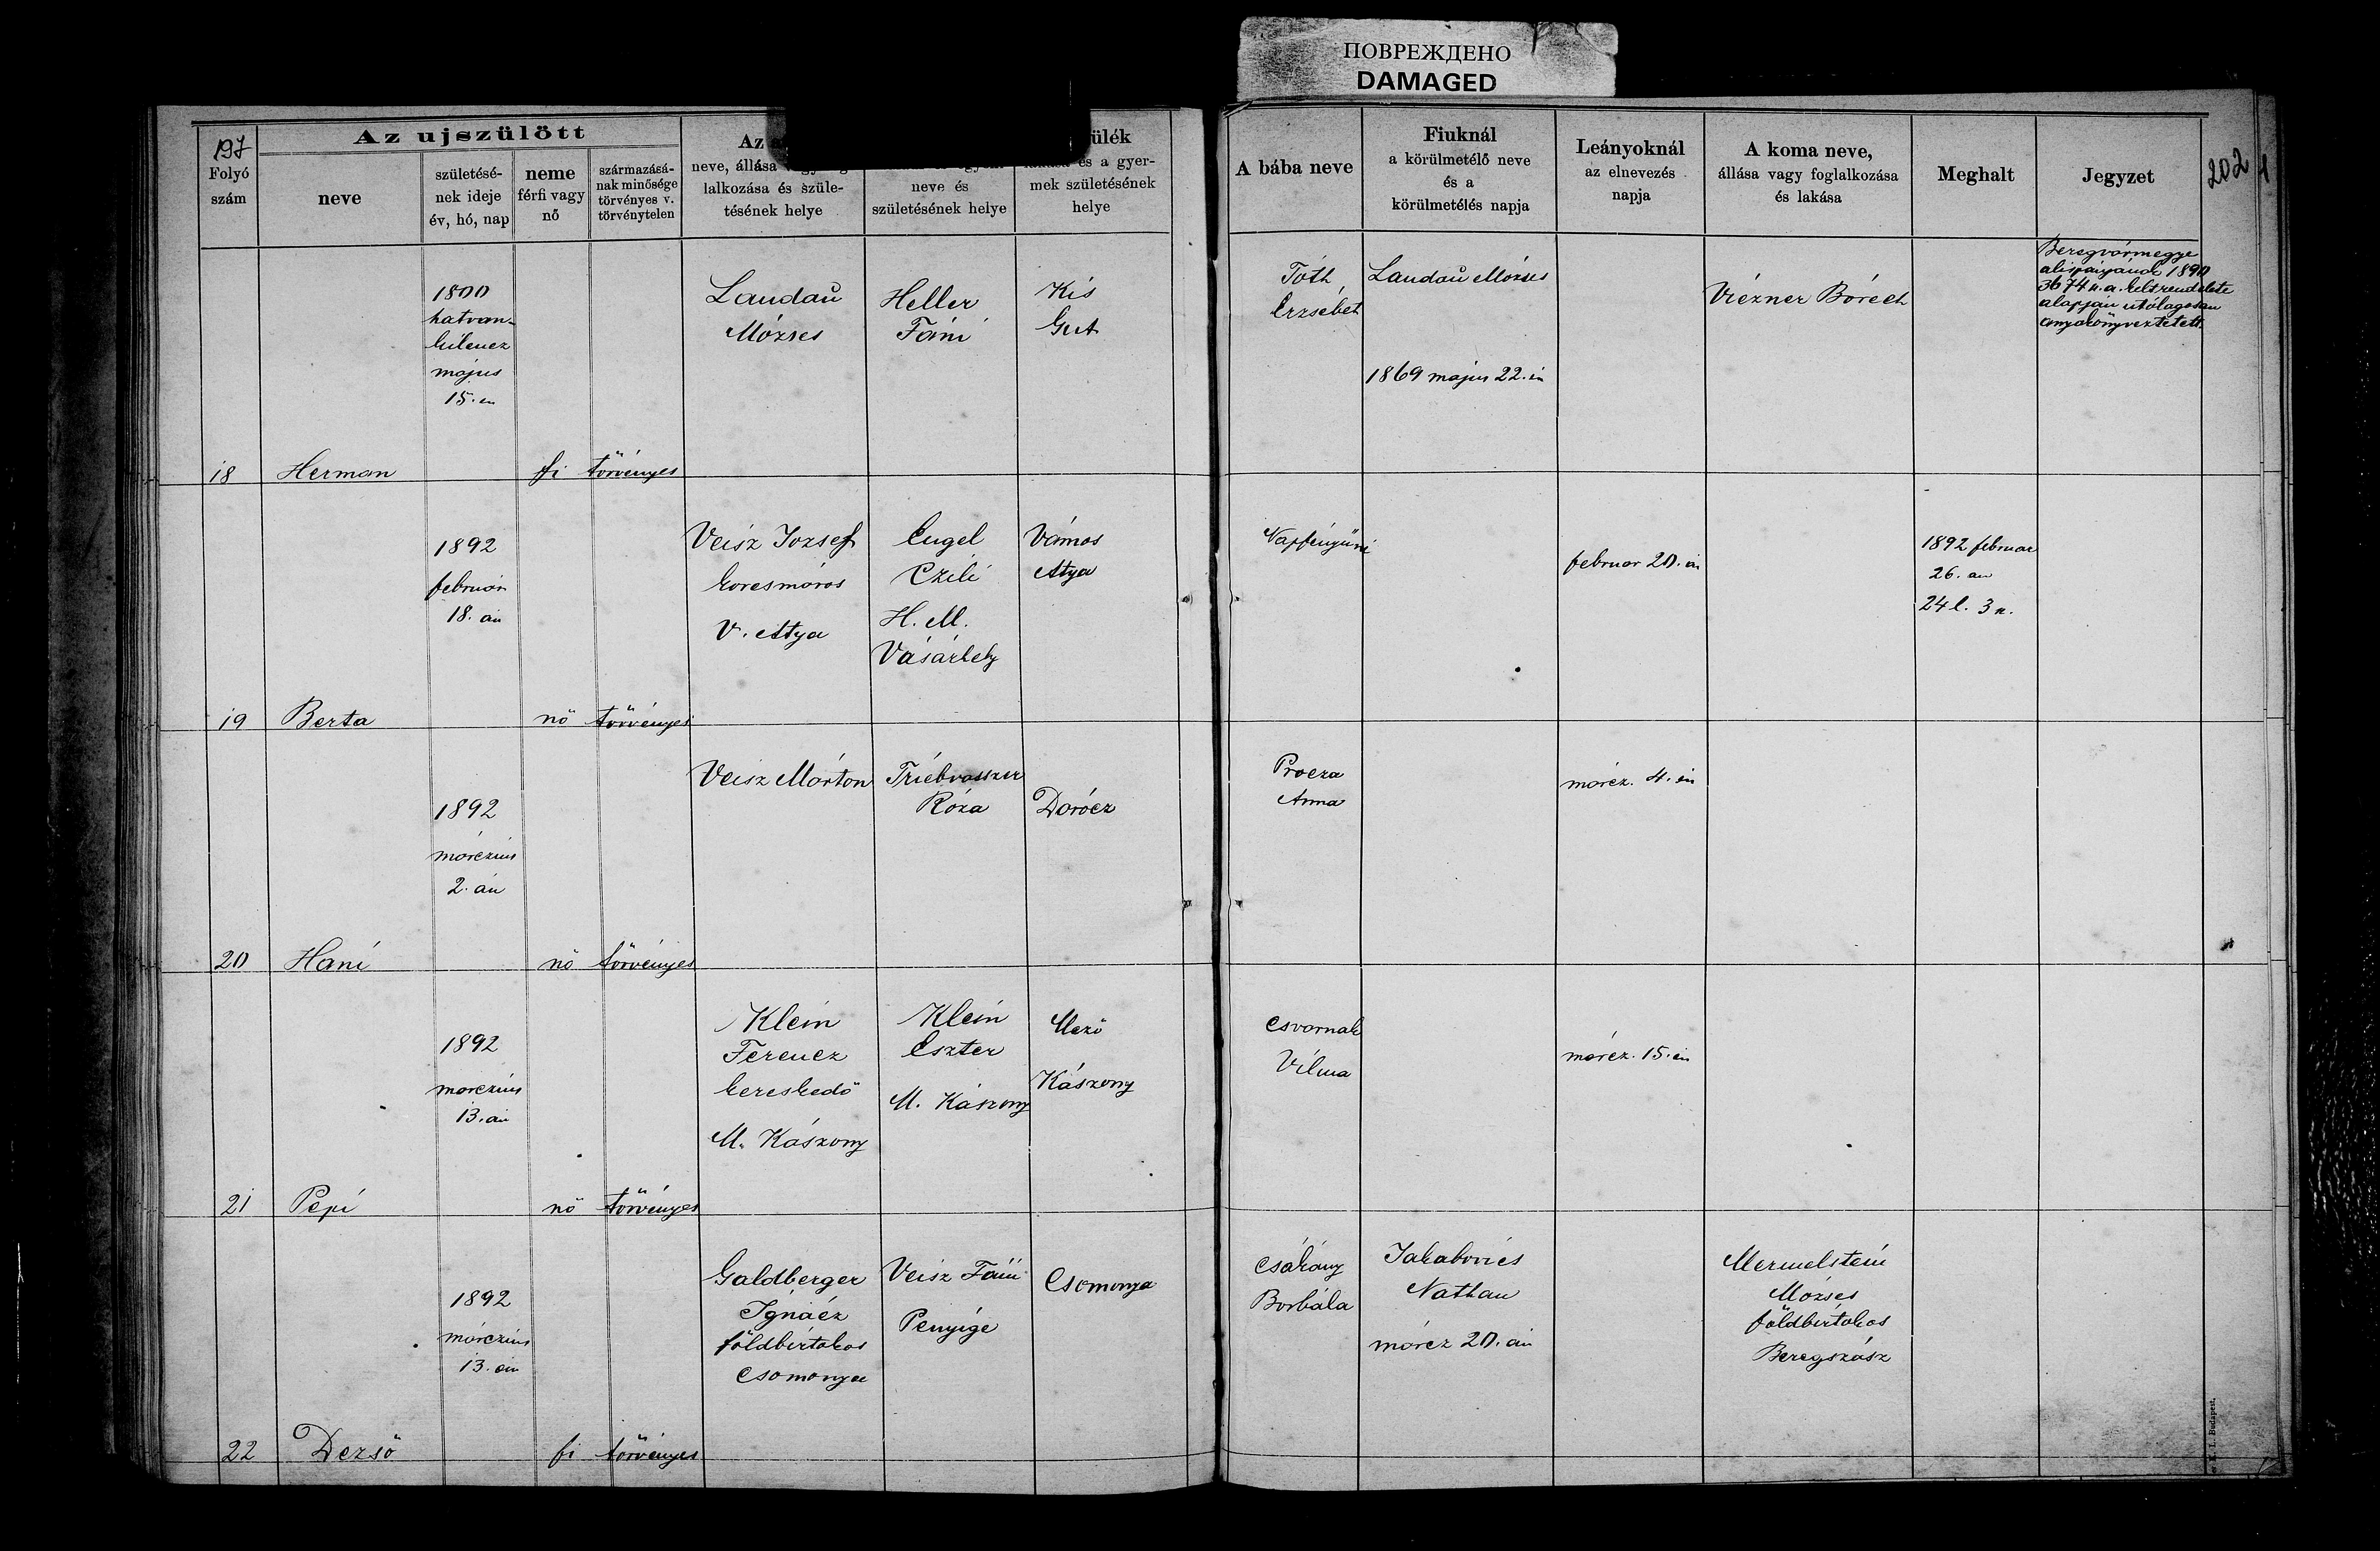 ПОВРЕЖДЕНО
DAMAGED
197
Folyó
szám
Az ujszülött
neve
születésé-
nek ideje
év, hó, nap
neme
férfi vagy
nő
származásá-
nak minősége
törvényes v.
törvénytelen
Az
neve, állása
lalkozása és szüle-
tésének helye
neve és
születésének helye
ülék
és a gyer-
mek születésének
helye
A bába neve
Fiuknál
a körülmetélő neve
és a
körülmetélés napja
Leányoknál
az elnevezés
napja
A koma neve,
állása vagy foglalkozása
és lakása
Meghalt
Jegyzet
202
18
Herman
1800
hatvan-
kilencz
május
15. én
fi
törvényes
Landau
Mózses
Heller
Fáni
Kis
Gut
Tóth
Erzsébet
Landau Mózses
1869 május 22. én
Viézner Bórech
Beregvármegye
alispánjának 1890
3674 n. a. kelt rendelete
alapján utólagosan
anyakönyveztetett.
19
Berta
1892
február
18. án
nő
törvényes
Veisz Jozsef
korcsmáros
V. Atya
Engel
Czili
H. M.
Vásárhely
Vámos
Atya
februar 20. án
1892 februar
26. án
24 l. 3 n.
20
Hani
1892
márczius
2. án
nő
törvényes
Veisz Márton
Triebvasszer
Róza
Darócz
Procza
Anna
márcz. 4. én
21
Pepi
1892
marczius
13. án
nő
törvényes
Klein
Ferencz
kereskedő
M. Kászony
Klein
Eszter
M. Kászony
Mező
Kászony
Csvornak
Vilma
márcz. 15. én
22
Dezső
1892
márczius
13. án
fi
törvényes
Galdberger
Ignácz
földbirtokos
Csomonya
Veisz Fáni
Penyige
Csomonya
Csákány
Borbála
Jakabovics
Nathan
márcz 20. án
Mermelstein
Mózses
földbirtokos
Beregszász
L. Budapest.